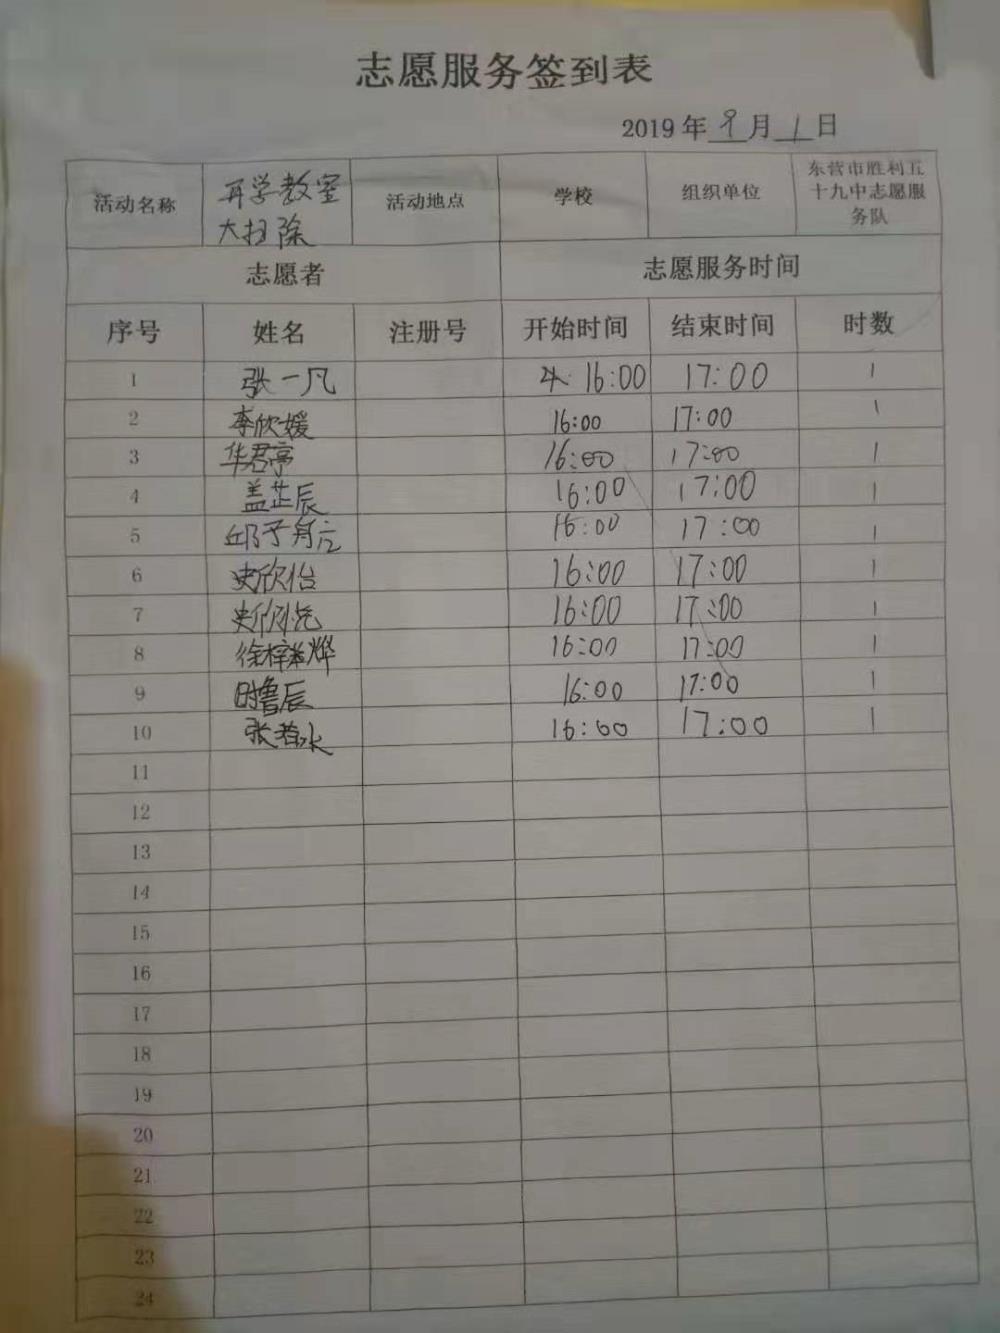 志愿服务签到表
2019年 9 月 1 日
活动名称 开学教室 活动地点 学校 组织单位 东营市胜利五
大扫除 十九中志愿服
务队
志愿者 志愿服务时间
序号 姓名 注册号 开始时间 结束时间 时数
1 张一凡 16:00 17:00 1
2 李欣媛 16:00 17:00 1
3 华君亭 16:00 17:00 1
4 盖芷辰 16:00 17:00 1
5 邱子 16:00 17:00 1
6 史欣怡 16:00 17:00 1
7 史 16:00 17:00 1
8 徐梓 16:00 17:00 1
9 时鲁辰 16:00 17:00 1
10 张若冰 16:00 17:00 1
11
12
13
14
15
16
17
18
19
20
21
22
23
24